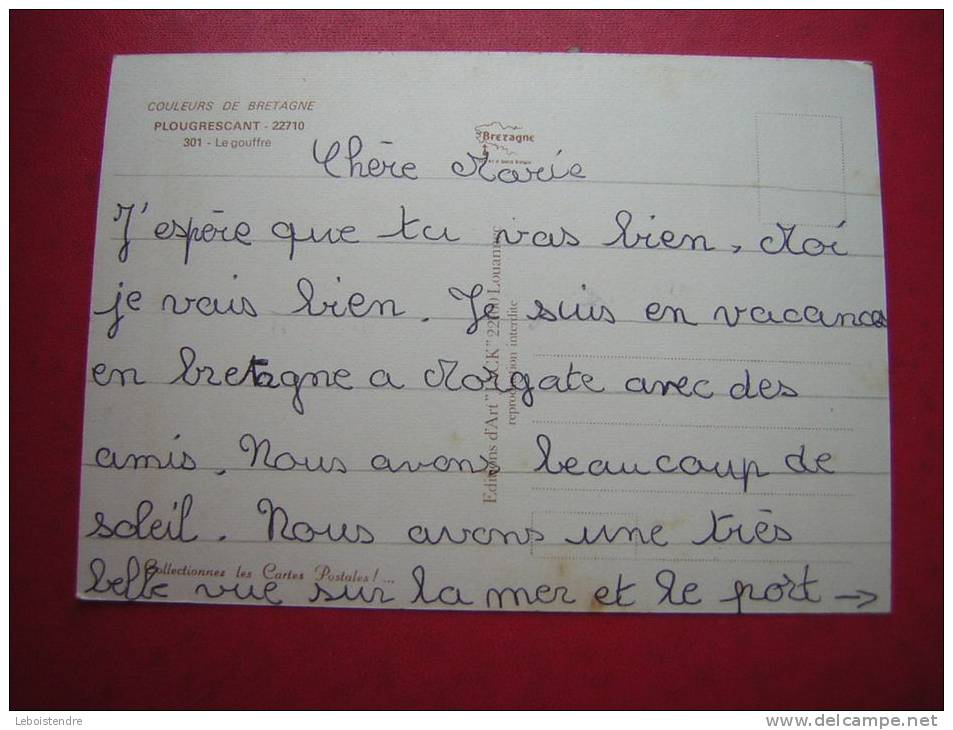 COULEURS DE BRETAGNE
PLOUGRESCANT - 22710
301 - Le gouffre
Bretagne
Chère Marie
J'espère que tu vas bien, Moi
je vais bien. Je suis en vacances
en bretagne a Morgate avec des
amis. Nous avons beaucoup de
soleil. Nous avons une très
belle vue sur la mer et le port →
Editions d'Art "JACK" 22 Louannec
reproduction interdite
Collectionnez les Cartes Postales ! ...
Leboistendre
www.delcampe.net